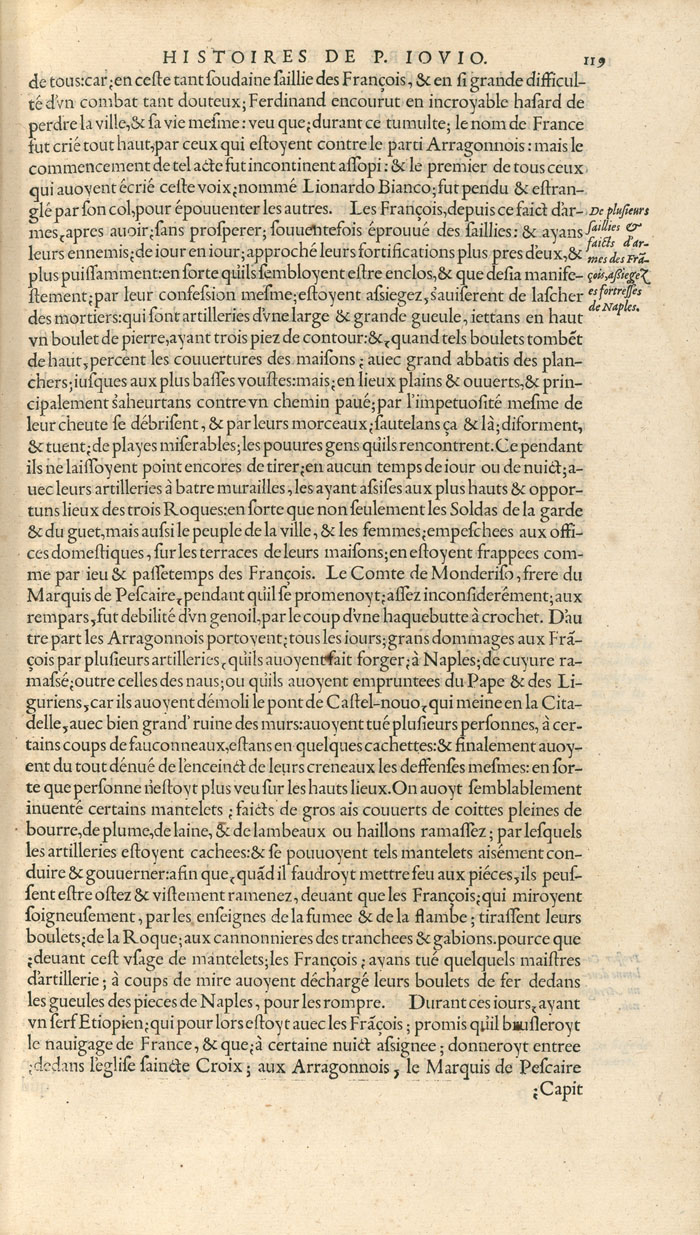 HISTOIRES DE P. IOVIO. 119
de tous:car;en ceſte tant ſoudaine ſaillie des François, & en ſi grande difficul-
té d'vn combat tant douteux; Ferdinand encourut en incroyable haſard de
perdre la ville, & ſa vie meſme: veu que;durant ce tumulte; le nom de France
fut crié tout haut,par ceux qui eſtoyent contre le parti Arragonnois: mais le
commencement de tel acte fut incontinent aſſopi: & le premier de tous ceux
qui auoyent écrié ceſte voix;nommé Lionardo Bianco;fut pendu & eſtran-
glé par ſon col,pour épouuenter les autres. Les François,depuis ce faict d'ar-
mes,apres auoir;ſans proſperer; ſouuentefois éprouué des ſaillies: & ayans
leurs ennemis;de iour en iour;approché leurs fortifications plus pres d'eux,&
plus puiſſamment:en ſorte qu'ils ſembloyent eſtre enclos,& que deſia manife-
ſtement;par leur confeſſion meſme;eſtoyent aſsiegez, s'auiſerent de laſcher
des mortiers:qui ſont artilleries d'vne large & grande gueule, iettans en haut
vn boulet de pierre,ayant trois piez de contour:&,quand tels boulets tombẽt
de haut, percent les couuertures des maiſons; auec grand abbatis des plan-
chers;iuſques aux plus baſſes vouſtes:mais;en lieux plains & ouuerts,& prin-
cipalement s'aheurtans contre vn chemin paué;par l'impetuoſité meſme de
leur cheute ſe débriſent, & par leurs morceaux;ſautelans ça & là;diforment,
& tuent;de playes miſerables;les pouures gens qu'ils rencontrent. Ce pendant
ils ne laiſſoyent point encores de tirer;en aucun temps de iour ou de nuict;a-
uec leurs artilleries à batre murailles, les ayant aſsiſes aux plus hauts & oppor-
tuns lieux des trois Roques:en ſorte que non ſeulement les Soldas de la garde
& du guet,mais auſsi le peuple de la ville, & les femmes;empeſchees aux offi-
ces domeſtiques, ſur les terraces de leurs maiſons;en eſtoyent frappees com-
me par ieu & paſſetemps des François. Le Comte de Monderiſo, frere du
Marquis de Peſcaire,pendant qu'il ſe promenoyt;aſſez inconſiderément;aux
rempars, fut debilité d'vn genoil,par le coup d'vne haquebutte à crochet. D'au
tre part les Arragonnois portoyent;tous les iours;grans dommages aux Frã-
çois par pluſieurs artilleries,qu'ils auoyent fait forger;à Naples;de cuyure ra-
maſſé;outre celles des naus;ou qu'ils auoyent empruntees du Pape & des Li-
guriens, car ils auoyent démoli le pont de Caſtel-nouo,qui meine en la Cita-
delle,auec bien grand' ruine des murs:auoyent tué pluſieurs perſonnes, à cer-
tains coups de fauconneaux,eſtans en quelques cachettes:& finalement auoy-
ent du tout dénué de l'enceinct de leurs creneaux les deffenſes meſmes: en ſor-
te que perſonne n'eſtoyt plus veu ſur les hauts lieux. On auoyt ſemblablement
inuenté certains mantelets ; faicts de gros ais couuerts de coittes pleines de
bourre,de plume,de laine, & de lambeaux ou haillons ramaſſez; par leſquels
les artilleries eſtoyent cachees:& ſe pouuoyent tels mantelets aisément con-
duire & gouuerner:afin que,quãd il faudroyt mettre feu aux piéces, ils peuſ-
ſent eſtre oſtez & viſtement ramenez, deuant que les François;qui miroyent
ſoigneuſement, par les enſeignes de la fumee & de la flambe; tiraſſent leurs
boulets;de la Roque;aux cannonnieres des tranchees & gabions.pource que
;deuant ceſt vſage de mantelets;les François ; ayans tué quelquels maiſtres
d'artillerie; à coups de mire auoyent déchargé leurs boulets de fer dedans
les gueules des pieces de Naples, pour les rompre. Durant ces iours,ayant
vn ſerf Etiopien;qui pour lors eſtoyt auec les Frãçois; promis qu'il bruſleroyt
le nauigage de France, & que;à certaine nuict aſsignee; donneroyt entree
;dedans l'egliſe ſaincte Croix; aux Arragonnois, le Marquis de Peſcaire
;Capit
De pluſieurs
ſaillies &
faicts d'ar-
mes des Frã-
çois,aßiegez
es fortreſſes
de Naples.